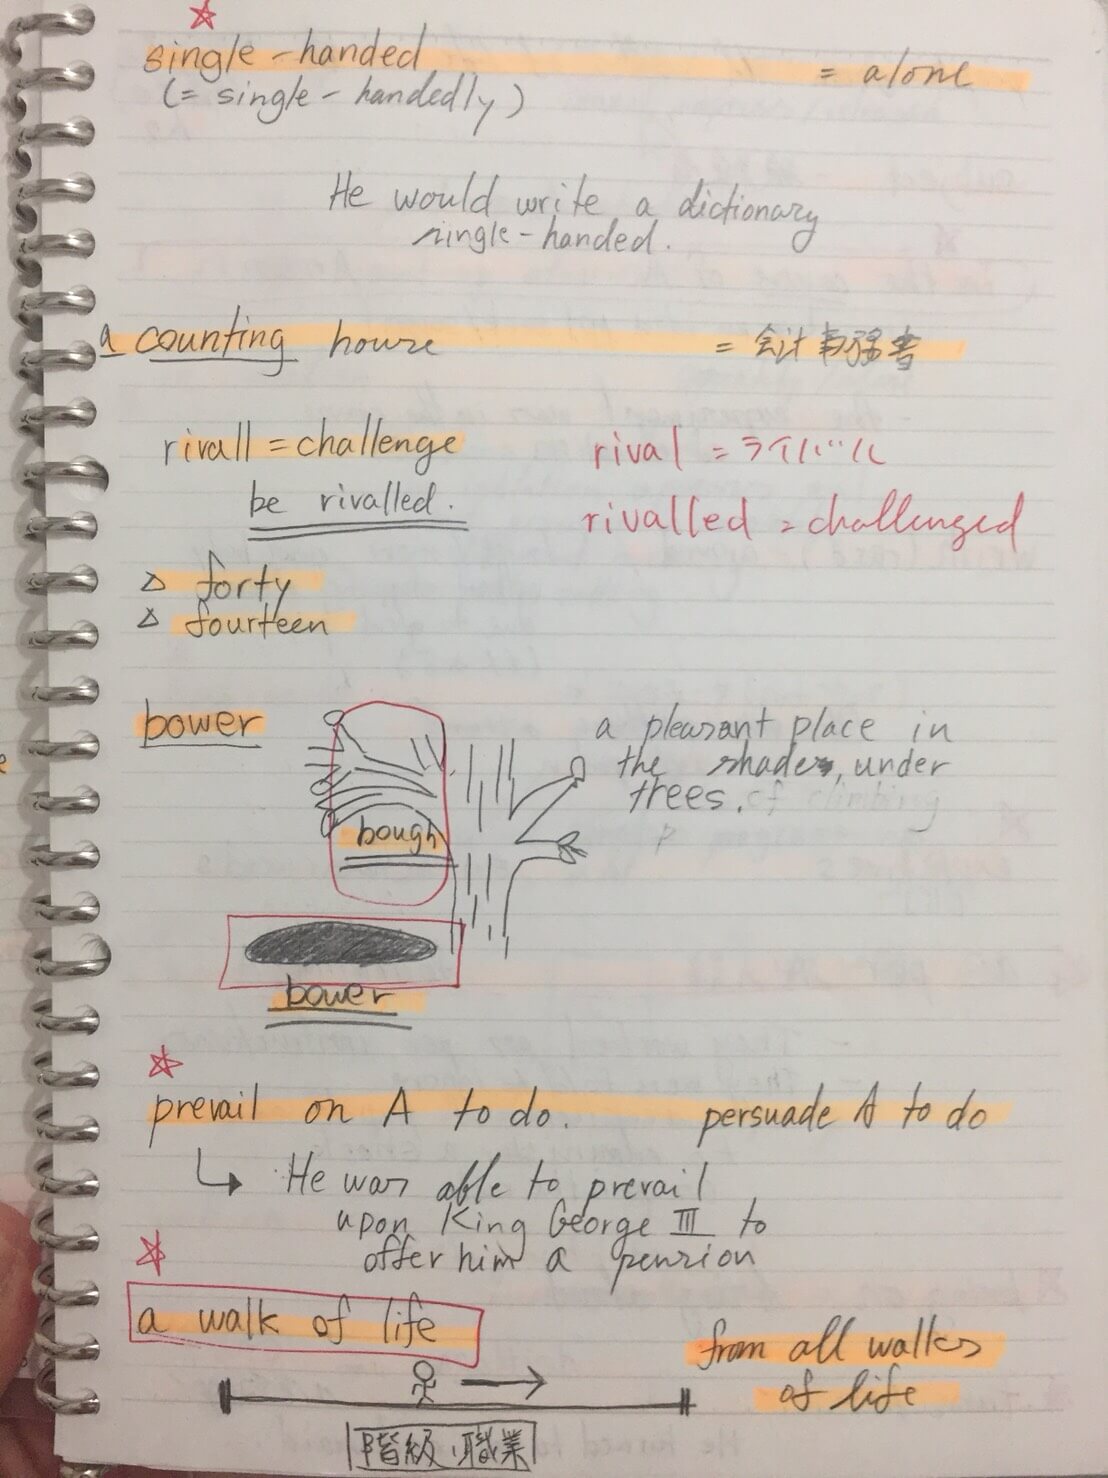 single-handed = alone
(= single-handedly)
He would write a dictionary
single-handed.
a counting house = 会計事務
rivall = challenge rival = ライバル
be rivalled. rivalled = challenged
△ forty
△ fourteen
bower
a pleasant place in
the shade, under
trees. of climbing
bough
bower
prevail on A to do. persuade A to do
He was able to prevail
upon King George III to
offer him a pension
a walk of life
from all walks
of life
階級、職業